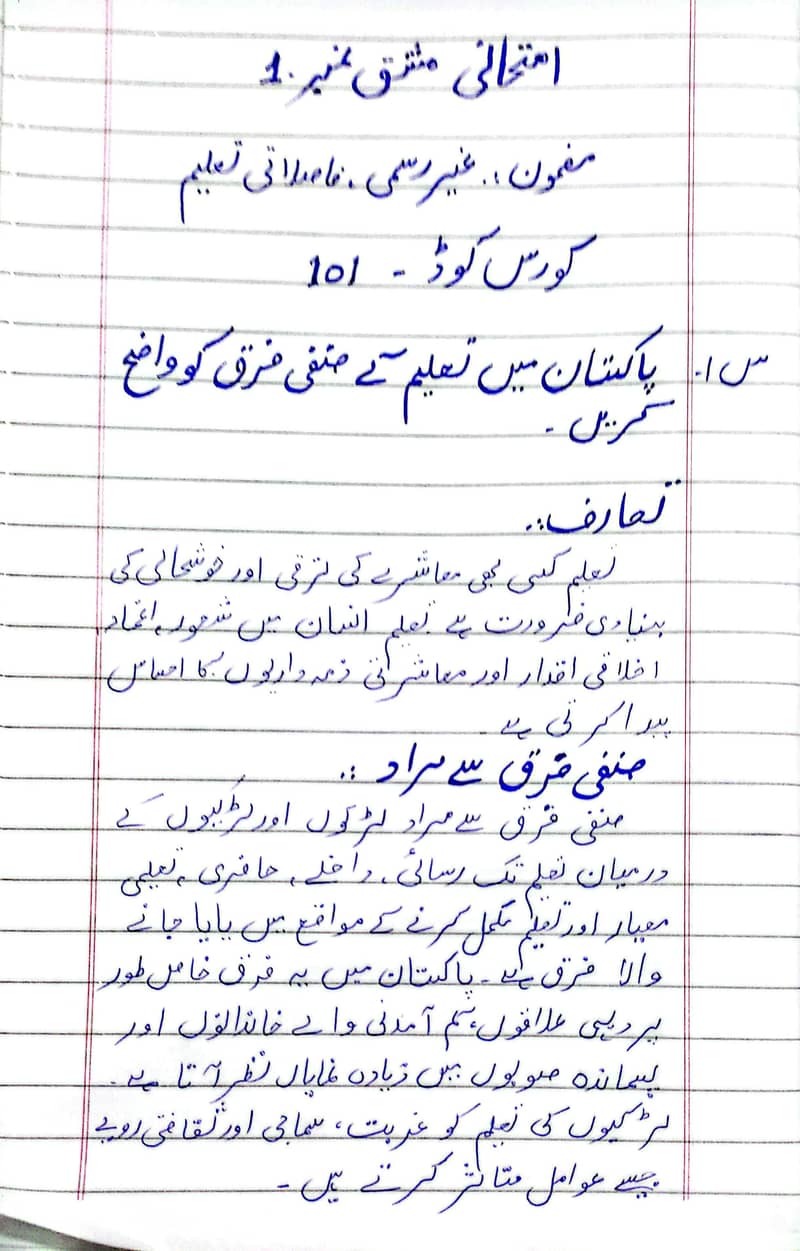 امتحانی مشق نمبر 1.
مضمون :. غیر رسمی ، فاصلاتی تعلیم
کورس کوڈ - 101
س 1. پاکستان میں تعلیم کے صنفی فرق کو واضح
کریں -
تعارف :.
تعلیم کسی بھی معاشرے کی ترقی اور خوشحالی کی
بنیادی ضرورت ہے تعلیم انسان میں شعور ، اعتماد
اخلاقی اقدار اور معاشرتی ذمہ داریوں کا احساس
پیدا کرتی ہے -
صنفی فرق سے مراد :.
صنفی فرق سے مراد لڑکوں اور لڑکیوں کے
درمیان تعلیم تک رسائی ، داخلے ، حاضری ، تعلیمی
معیار اور تعلیم مکمل کرنے کے مواقع میں پایا جانے
والا فرق ہے - پاکستان میں یہ فرق خاص طور
پر دیہی علاقوں ، کم آمدنی والے خاندانوں اور
پسماندہ صوبوں میں زیادہ نمایاں نظر آتا ہے -
لڑکیوں کی تعلیم کو غربت ، سماجی اور ثقافتی رویے
جیسے عوامل متاثر کرتے ہیں -